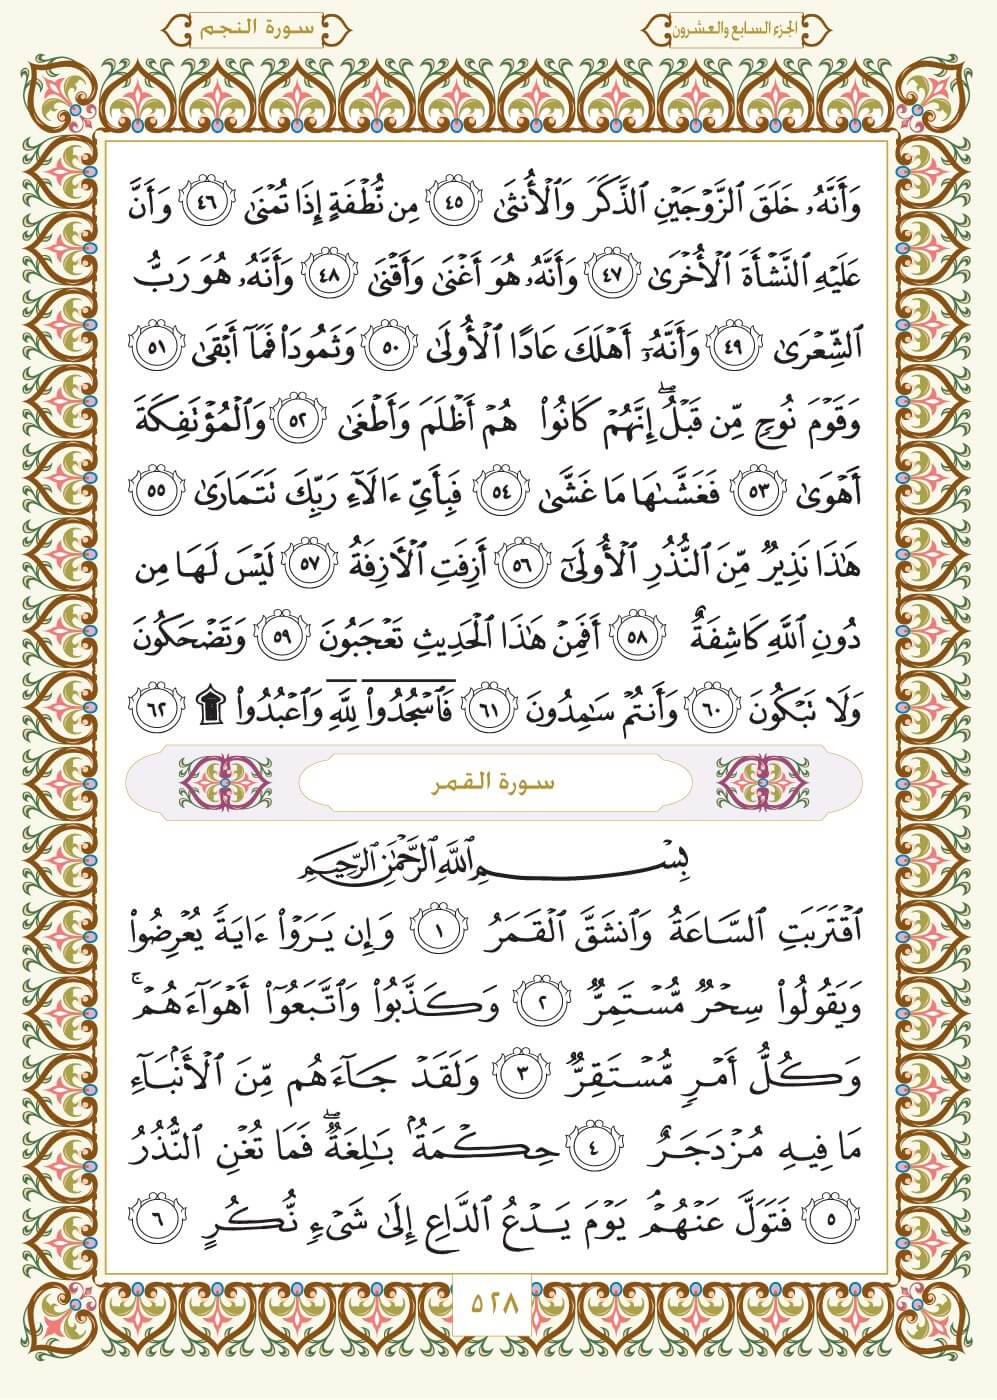 الجزء السابع والعشرون
سورة النجم
وَأَنَّهُۥ خَلَقَ ٱلزَّوْجَيْنِ ٱلذَّكَرَ وَٱلْأُنثَىٰ ٤٥ مِن نُّطْفَةٍ إِذَا تُمْنَىٰ ٤٦ وَأَنَّ
عَلَيْهِ ٱلنَّشْأَةَ ٱلْأُخْرَىٰ ٤٧ وَأَنَّهُۥ هُوَ أَغْنَىٰ وَأَقْنَىٰ ٤٨ وَأَنَّهُۥ هُوَ رَبُّ
ٱلشِّعْرَىٰ ٤٩ وَأَنَّهُۥٓ أَهْلَكَ عَادًا ٱلْأُولَىٰ ٥٠ وَثَمُودَا۟ فَمَآ أَبْقَىٰ ٥١
وَقَوْمَ نُوحٍ مِّن قَبْلُ ۖ إِنَّهُمْ كَانُوا۟ هُمْ أَظْلَمَ وَأَطْغَىٰ ٥٢ وَٱلْمُؤْتَفِكَةَ
أَهْوَىٰ ٥٣ فَغَشَّىٰهَا مَا غَشَّىٰ ٥٤ فَبِأَىِّ ءَالَآءِ رَبِّكَ تَتَمَارَىٰ ٥٥
هَٰذَا نَذِيرٌ مِّنَ ٱلنُّذُرِ ٱلْأُولَىٰٓ ٥٦ أَزِفَتِ ٱلْـَٔازِفَةُ ٥٧ لَيْسَ لَهَا مِن
دُونِ ٱللَّهِ كَاشِفَةٌ ٥٨ أَفَمِنْ هَٰذَا ٱلْحَدِيثِ تَعْجَبُونَ ٥٩ وَتَضْحَكُونَ
وَلَا تَبْكُونَ ٦٠ وَأَنتُمْ سَٰمِدُونَ ٦١ فَٱسْجُدُوا۟ لِلَّهِ وَٱعْبُدُوا۟ ۩ ٦٢
سورة القمر
بِسْمِ ٱللَّهِ ٱلرَّحْمَٰنِ ٱلرَّحِيمِ
ٱقْتَرَبَتِ ٱلسَّاعَةُ وَٱنشَقَّ ٱلْقَمَرُ ١ وَإِن يَرَوْا۟ ءَايَةً يُعْرِضُوا۟
وَيَقُولُوا۟ سِحْرٌ مُّسْتَمِرٌّ ٢ وَكَذَّبُوا۟ وَٱتَّبَعُوٓا۟ أَهْوَآءَهُمْ ۚ
وَكُلُّ أَمْرٍ مُّسْتَقِرٌّ ٣ وَلَقَدْ جَآءَهُم مِّنَ ٱلْأَنۢبَآءِ
مَا فِيهِ مُزْدَجَرٌ ٤ حِكْمَةٌۢ بَٰلِغَةٌ ۖ فَمَا تُغْنِ ٱلنُّذُرُ
٥ فَتَوَلَّ عَنْهُمْ ۘ يَوْمَ يَدْعُ ٱلدَّاعِ إِلَىٰ شَىْءٍ نُّكُرٍ ٦
٥٢٨